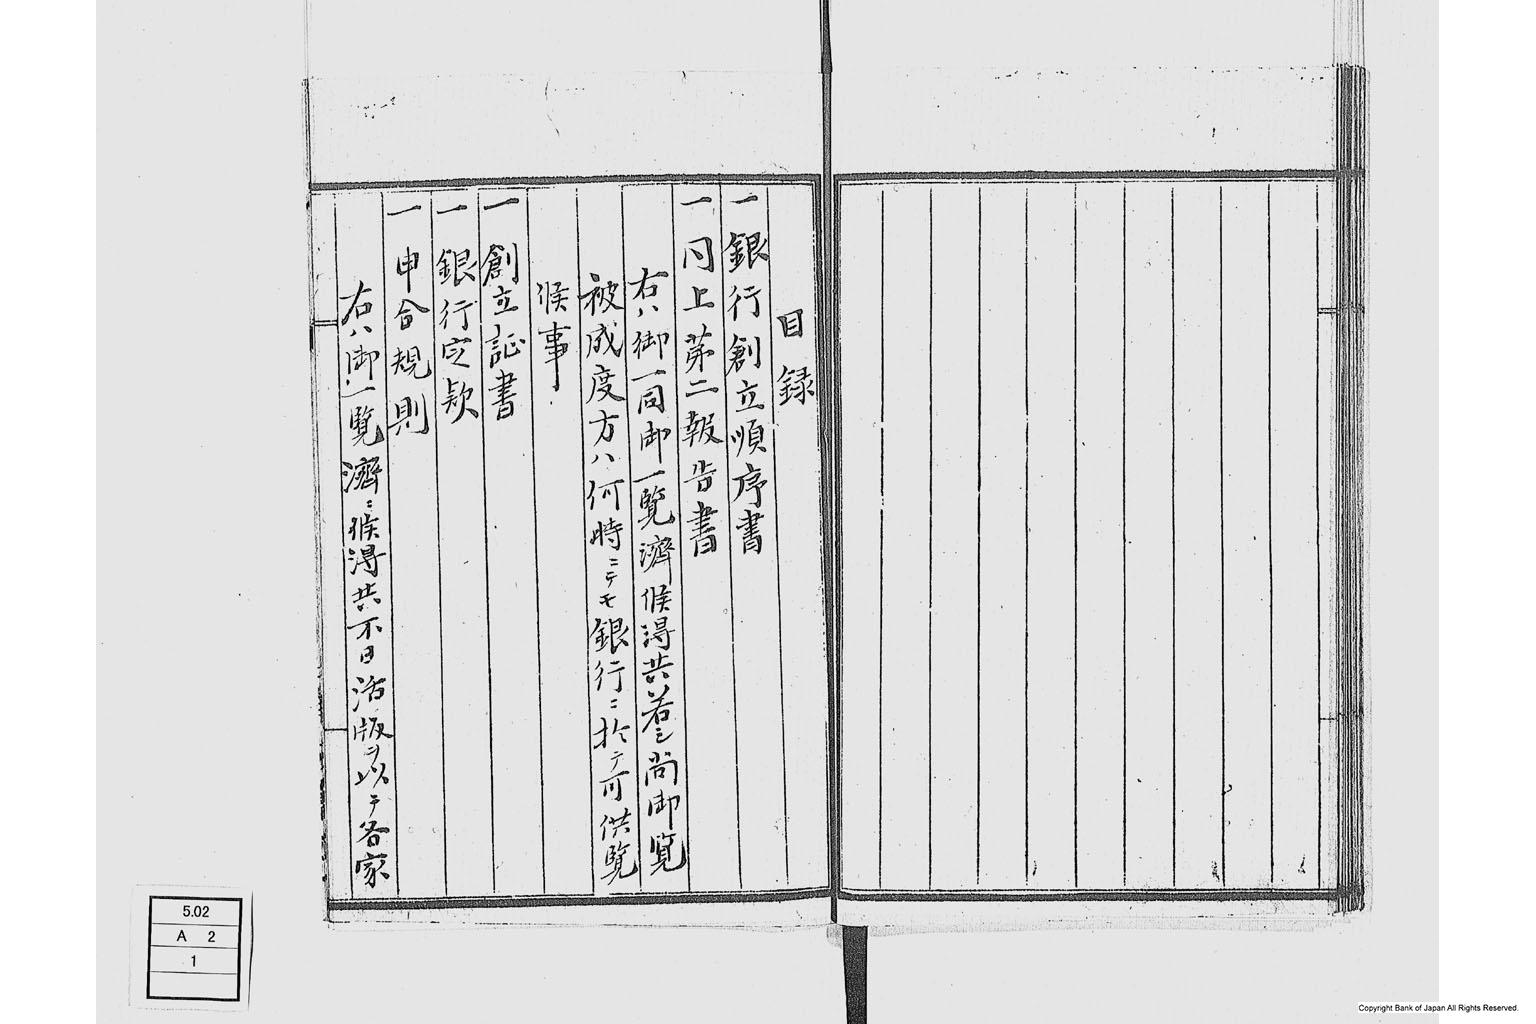 目録
一銀行創立順序書
一同上第二報告書
右ハ御一同御一覧濟候得共若シ尚御覧
被成度方ハ何時ニテモ銀行ニ於テ可供覧
候事
一創立証書
一銀行定款
一申合規則
右ハ御一覧濟ニ候得共不日活版ヲ以テ各家
5.02
A 2
1
Copyright Bank of Japan All Rights Reserved.